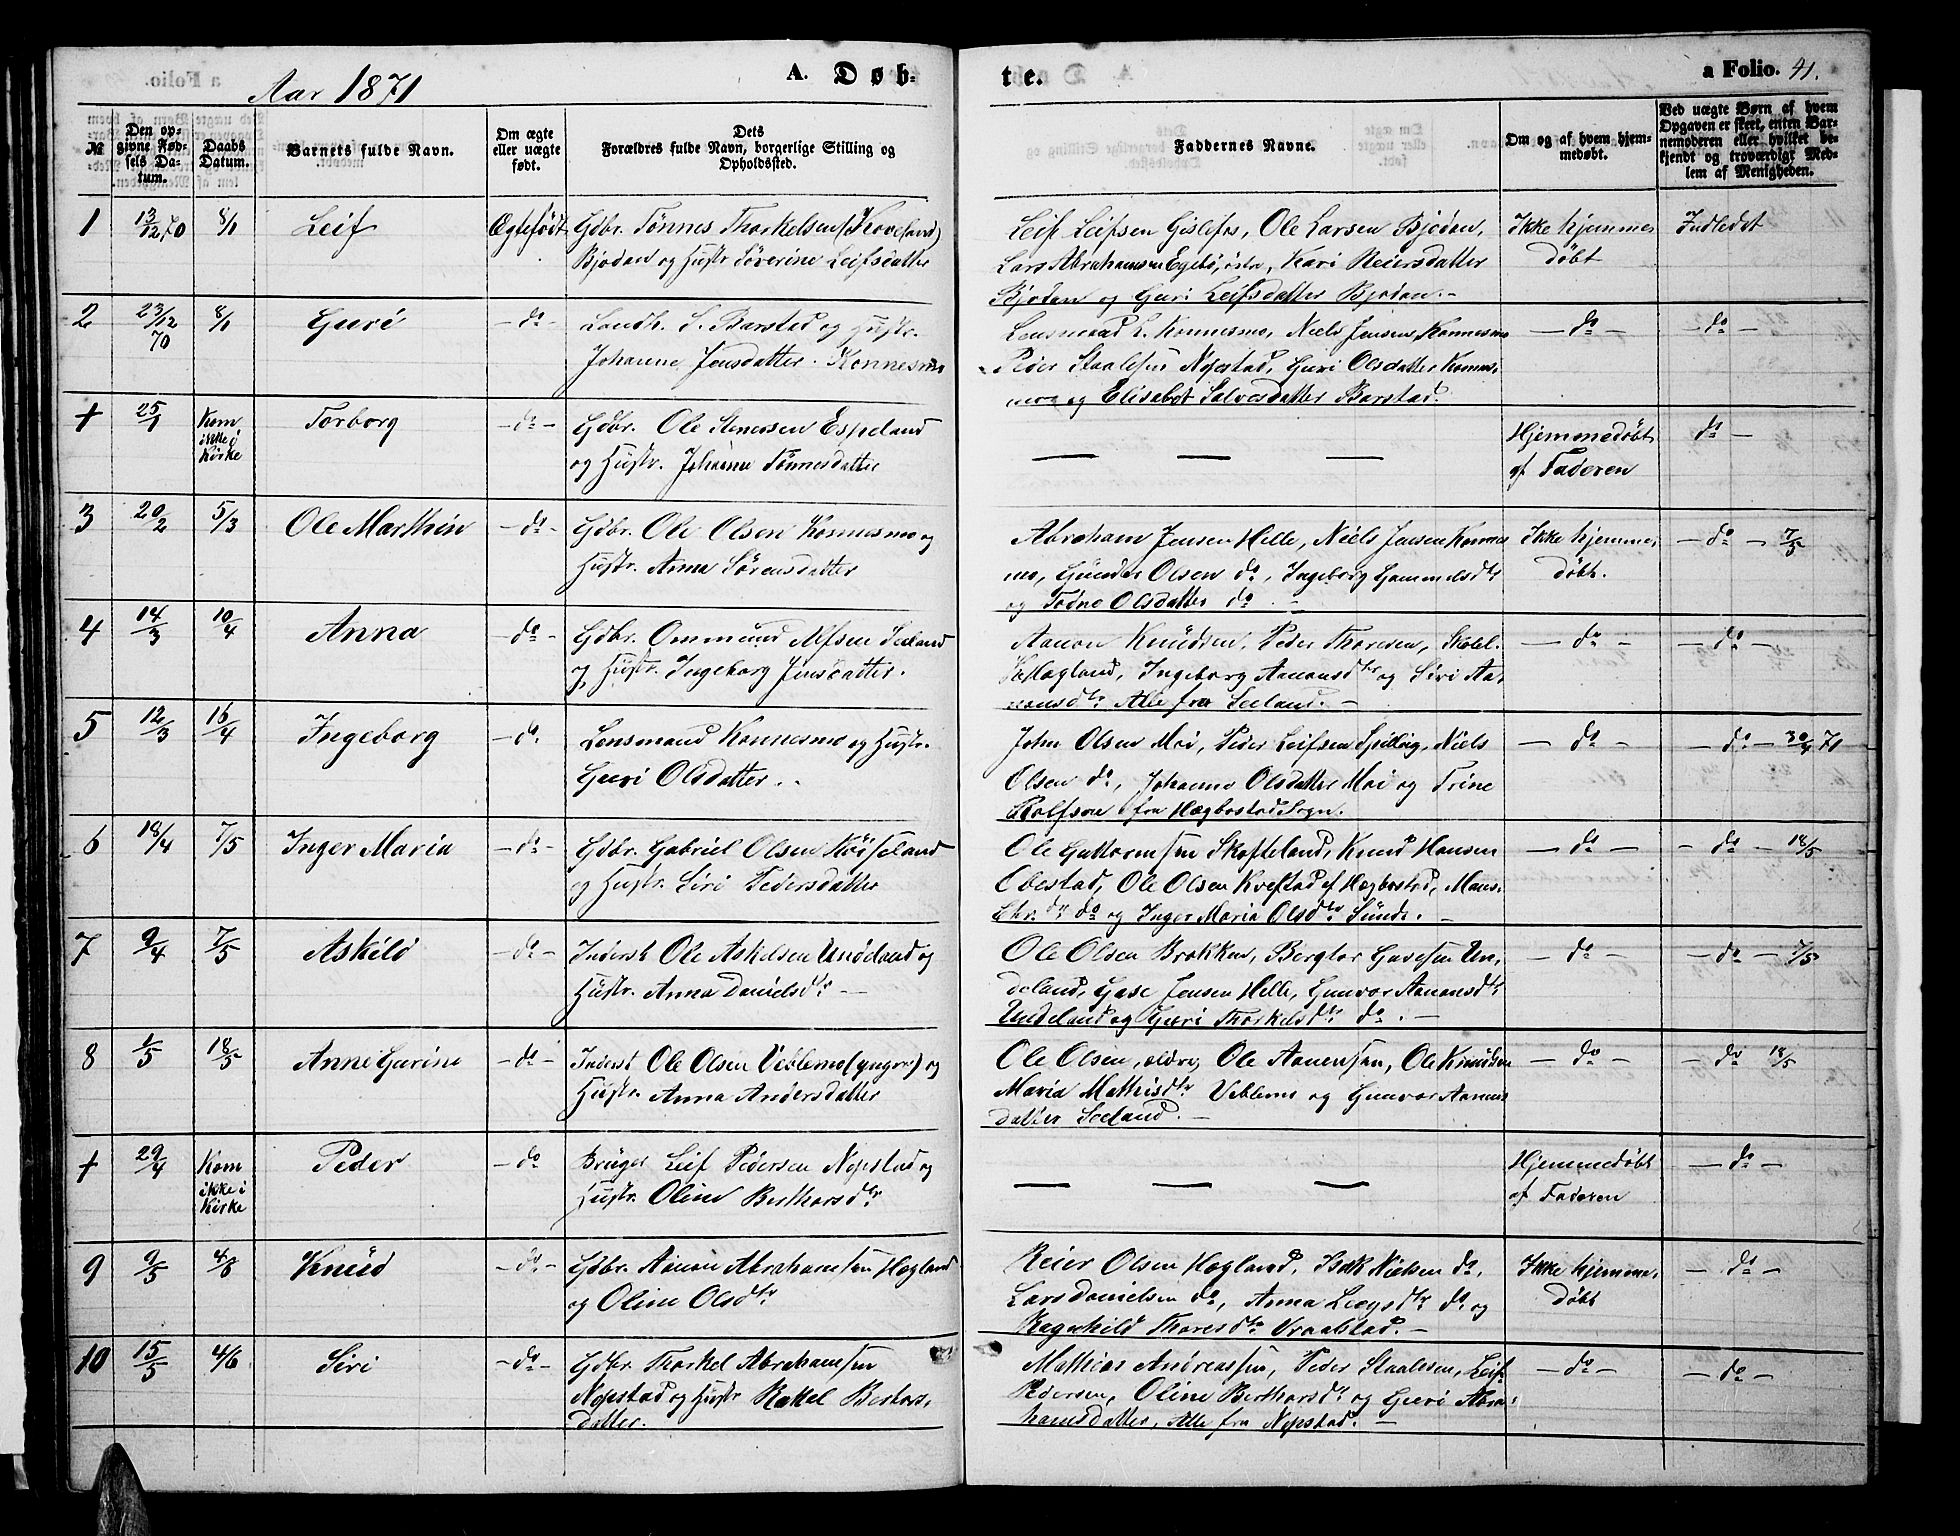 Aar 1871
A. Døbte.
a Folio. 41.
№
Den opgivne Fødsels Datum.
Daabs Datum.
Barnets fulde Navn.
Om ægte eller uægte født.
Dets
Forældres fulde Navn, borgerlige Stilling og Opholdssted.
Faddernes Navne.
Om og af hvem hjemmedøbt.
Ved uægte Børn af hvem Opgaven er skeet, enten Barnemoderen eller hvilket bekjendt og troværdigt Medlem af Menigheden.
1 13/12 70 8/1 Leif Ægtefødt Gdbr. Tønnes Thorkelsen (Koveland)
Bjødan og Hustr Søverine Leifsdatter
Leif Leifsen Gislefos, Ole Larsen Bjødan,
Lars Abrahamsen Egebø, østre, Kari Reiersdatter
Bjødan og Guri Leifsdatter Bjødan.-
Ikke hjemme-
døbt
Indledet
2 23/12 70 8/1 Guri - do - Landh. S. Barstad og Hustr.
Johanne Jensdatter. Konnesmo
Lensmand L. Konnesmo, Niels Jensen Konnesmo
Peder Staalesen Nopstad, Guri Olsdatter Konnes-
mo og Elisabet Salvesdatter Barstad.
- do -
- do -
† 25/1 Kom ikke i Kirke Torborg - do - Gdbr. Ole Espeland
og Hustr. Johanne Tønnesdatter
— — —
Hjemmedøbt
af Faderen
do -
3 20/2 5/3 Ole Marthin - do - Gdbr. Ole Olsen Konnesmo og
Hustr. Anna Sørensdatter
Abraham Jensen Helle, Niels Jensen Konnes
mo, Gunder Olsen do, Ingeborg Gammelsdtr
og Todne Olsdatter do. -
Ikke hjemme-
døbt.
- do - 7/5
4 14/3 10/4 Anna - do - Gdbr. Ommund Seland
og Hustr. Ingeborg Jensdatter.
Aanon Knudsen, Peder Thoresen, Skolel.
Hægland, Ingeborg Aanonsdtr og Siri Aa-
nonsdtr Alle fra Seeland. -
- do -
- do -
5 12/3 16/4 Ingeborg - do. Lensmand Konnesmo og Hustr.
Guri Olsdatter.
John Olsen Moi, Peder Leifsen Spilling, Niels
Olsen do, Johanne Olsdatter Moi og Trine
Rolfsen fra Hægbostad Sogn.
- do -
- do - 30/4 71
6 18/4 7/5 Inger Maria - do - Gdbr. Gabriel Olsen
og Hustr. Siri Pedersdatter
Ole Guttormsen Skofteland, Knud Hansen
Obestad, Ole Olsen Kvestad af Hægbostad,
do og Inger Maria Olsdtr Sunde. -
- do -
- do - 18/5
7 9/4 7/5 Askild - do - Inderst Ole Askelsen Undeland og
Hustr. Anna Danielsdtr -
Ole Olsen Brokken, Bergtor Gavesen Un-
deland, Gase Jensen Helle, Gunvor Aanonsdtr
Undeland og Guri Thorkelsdtr do. -
- do -
- do - 7/5
8 1/5 18/5 Anne Gurine - do - Inderst Ole Olsen Veblemo (yngre) og
Hustr. Anna Andersdatter
Ole Olsen, ældre, Ole Aanensen, Ole Knudsen
Maria Mathisdtr Veblemo og Gunvor Aanens
datter Seeland. -
- do -
- do 18/5
† 29/4 Kom ikke i Kirke Peder - do Bruger Leif Pedersen Nopstad og
Hustr. Oline Berthorsdtr
— — —
Hjemmedøbt
af Faderen
- do -
9 9/5 4/6 Knud - do - Gdbr. Aanon Abrahamsen Hægland
og Oline Olsdtr
Reier Olsen Hægland, Isak Nielsen do,
Lars Danielsen do, Anna do og
Ragnhild Thoresdtr Vraalstad. -
Ikke hjemme-
døbt
- do -
10 15/5 4/6 Siri - do - Gdbr. Thorkel Abrahamsen
Nopstad og Hustr Rakel Berthors-
datter.
Mathias Andreassen, Peder Staalesen, Leif
Pedersen, Oline Berthorsdtr og Guri Abra-
hamsdatter, Alle fra Nopstad. -
- do -
- do -